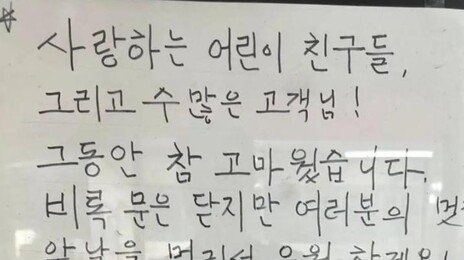 사랑하는 어린이 친구들,
그리고 수많은 고객님!
그동안 참 고마웠습니다.
비록 문은 닫지만 여러분의
앞날을 멀리서 응원 할게요!